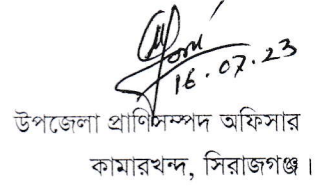 16.07.23
উপজেলা প্রাণিসম্পদ অফিসার
কামারখন্দ, সিরাজগঞ্জ।